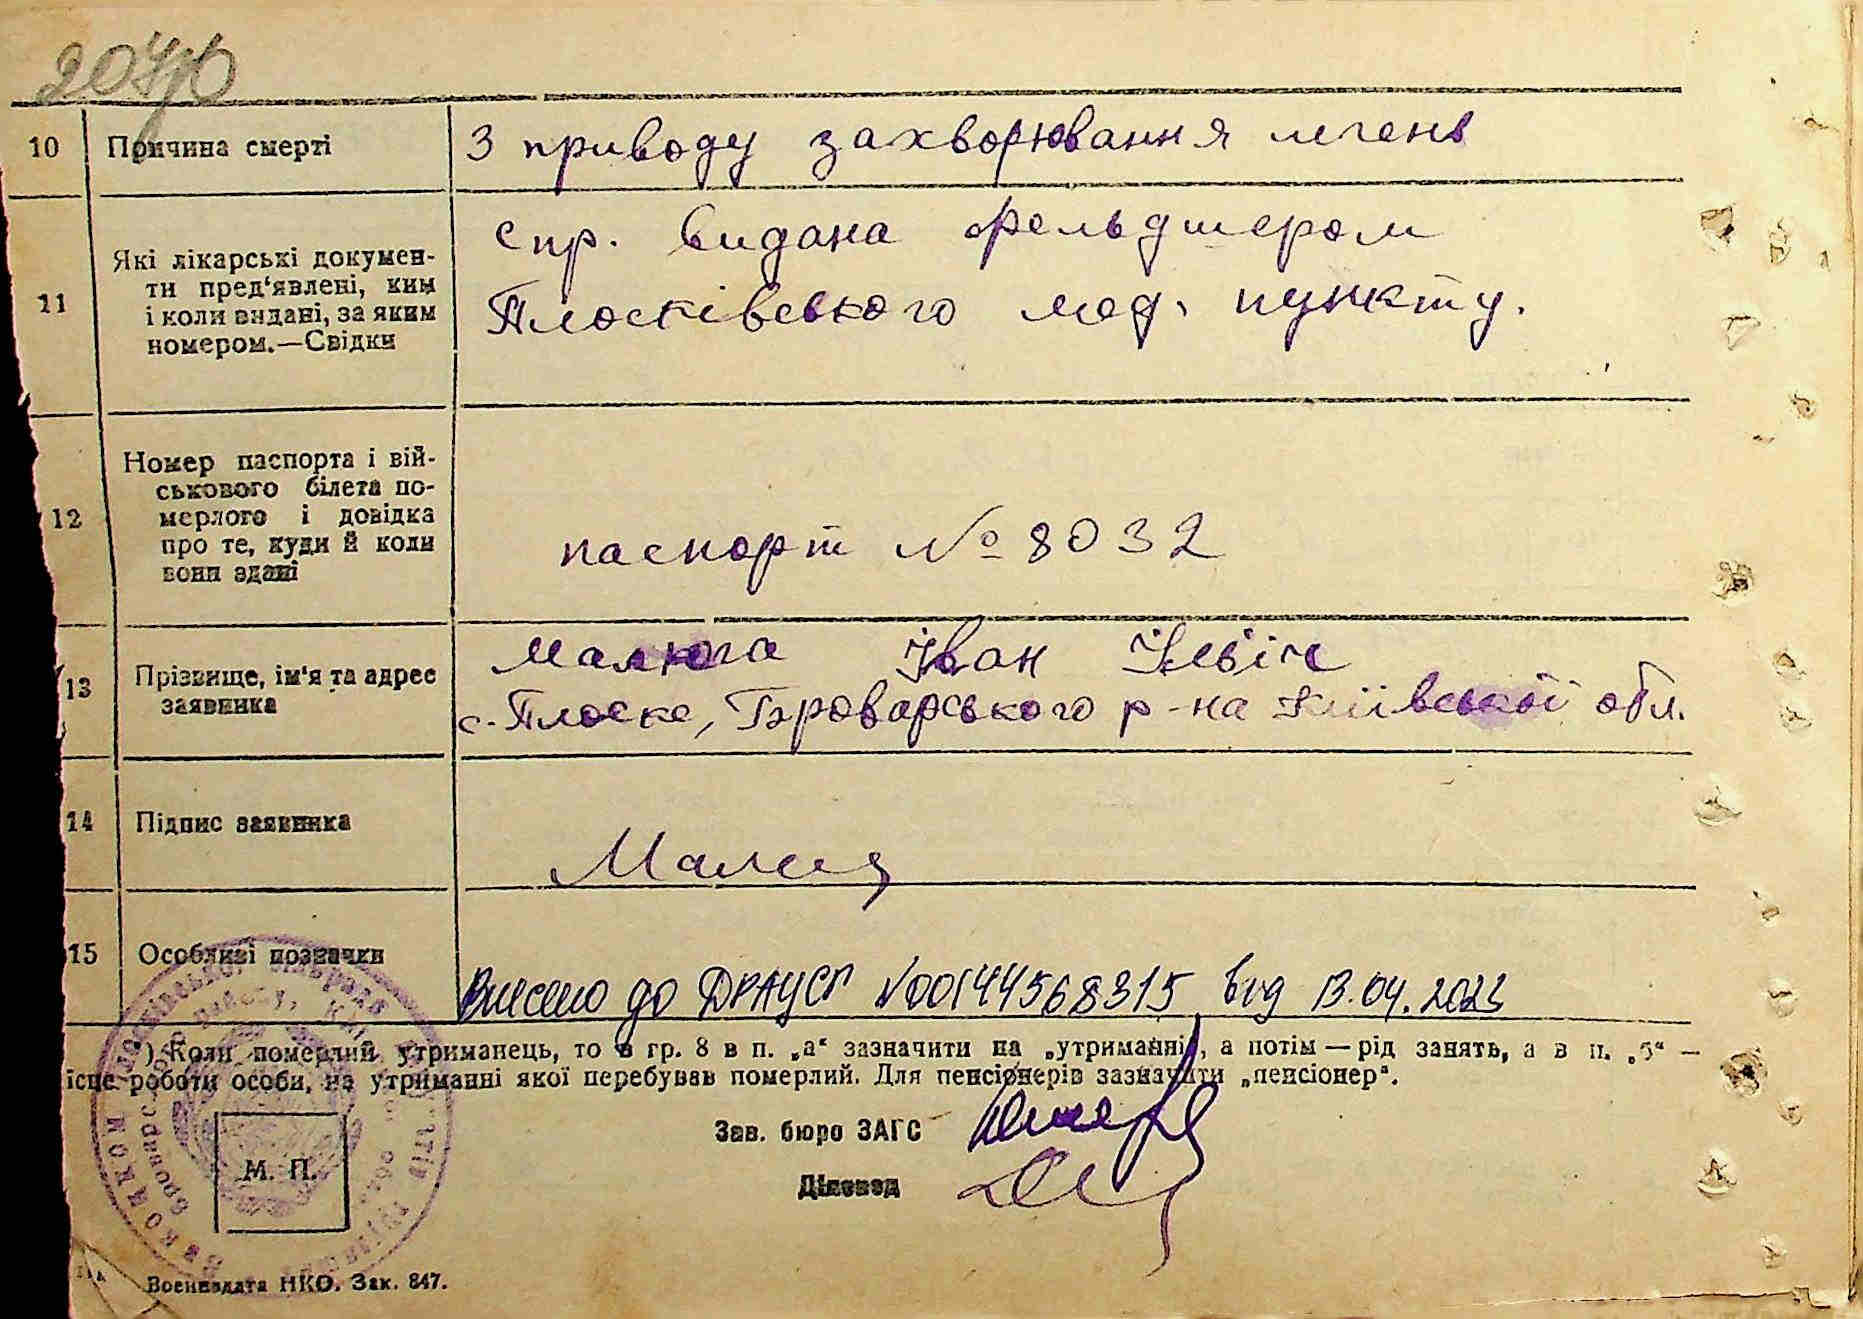 10 Причина смерті З приводу захворювання легень
11 Які лікарські докумен-
ти пред'явлені, ким
і коли видані, за яким
номером.—Свідки
Спр. видана фельдшером
Плосківського мед. пункту.
12 Номер паспорта і вій-
ськового білета по-
мерлого і довідка
про те, куди й коли
вони здані
паспорт № 8032
13 Прізвище, ім'я та адрес
заявника
Малюга Іван Ілвіч
с. Плоске, Броварського р-на Київської обл.
14 Підпис заявника
15 Особливі позначки
Внесено до ДРАЦСГ №00144568315 від 13.04.2023
*) Коли померлий утриманець, то в гр. 8 в п. „а“ зазначити на „утриманні“, а потім — рід занять, а в п. „б“ —
ісце роботи особи, на утриманні якої перебував померлий. Для пенсіонерів зазначити „пенсіонер“.
Зав. бюро ЗАГС
Діловод
М. П.
Воениздата НКО. Зак. 847.